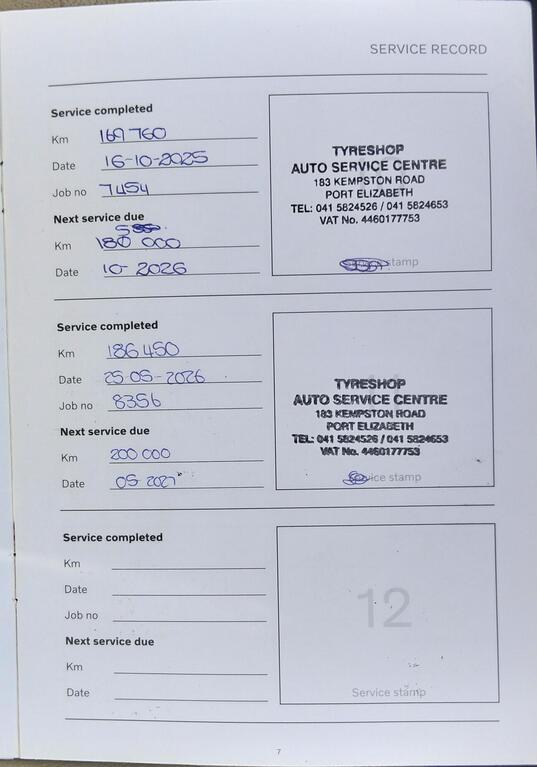 SERVICE RECORD
Service completed
Km 169 760
Date 16-10-2025
Job no 7454
Next service due
Km 180 000
Date 10-2026
TYRESHOP
AUTO SERVICE CENTRE
183 KEMPSTON ROAD
PORT ELIZABETH
TEL: 041 5824526 / 041 5824653
VAT No. 4460177753
stamp
Service completed
Km 186 450
Date 25-05-2026
Job no 8356
Next service due
Km 200 000
Date 05-2027
TYRESHOP
AUTO SERVICE CENTRE
183 KEMPSTON ROAD
PORT ELIZABETH
TEL: 041 5824526 / 041 5824653
VAT No. 4460177753
stamp
Service completed
Km
Date
Job no
Next service due
Km
Date
12
Service stamp
7